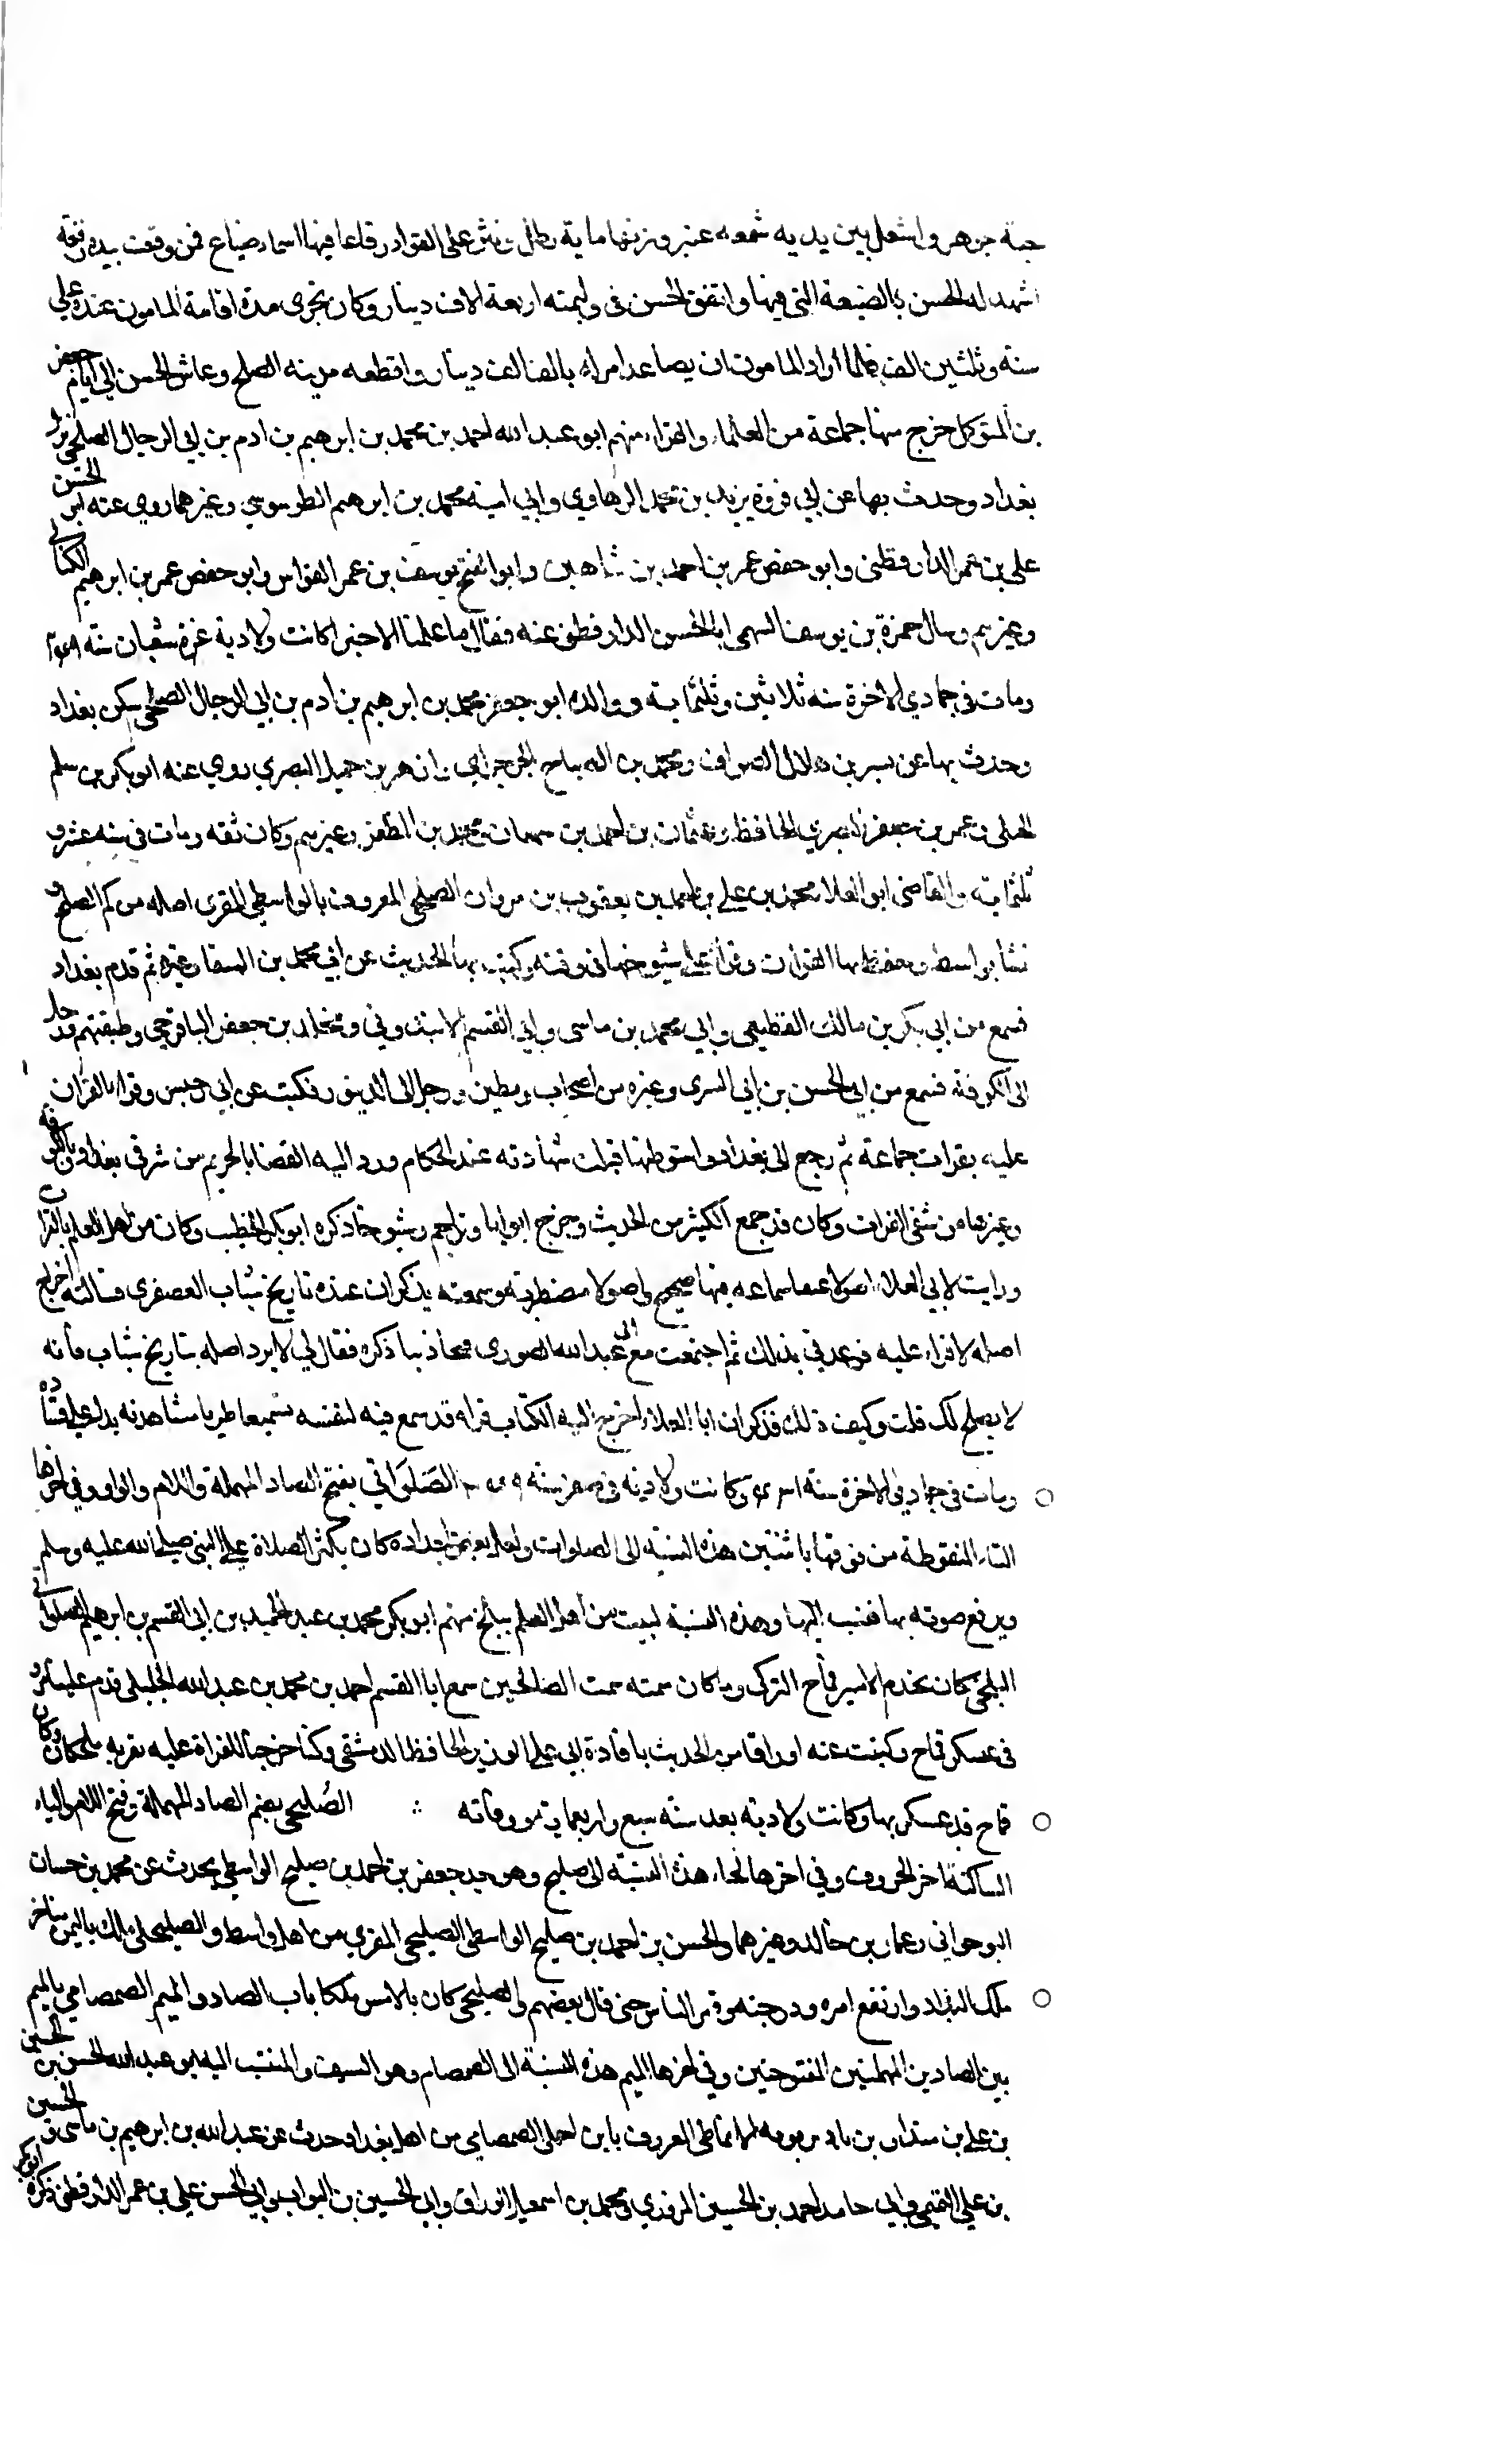 حبة جوهر واشعل بين يديه شمعه عنبر وزنها ماية رطل ونثر على القواد رقاعا فيها اسماء ضياع فمن وقعت بيده رقعه
اشهد له الحسن بالضيعة التي فيها وانفق الحسن في وليمته اربعة الاف دينار وكان يجرى مدة اقامة المامون عنده على
ستة وثلثين الف فلما اراد المامون ان يصاعد امر له بالف الف دينار واقطعه مدينه الصلح وعاش الحسن الى ايام جعفر
بن المتوكل خرج منها جماعة من العلماء والقراء منهم ابو عبد الله احمد بن محمد بن ابرهيم بن ادم بن ابي الرجال الصلحي نزل
بغداد وحدث بها عن ابي فروة يزيد بن محمد الرهاوي وابي امية محمد بن ابرهيم الطرسوسي وغيرهما روى عنه ابو الحسن
علي بن عمر الدارقطنى وابو حفص عمر بن احمد بن شاهين وابو الفتح يوسف بن عمر القواس وابو حفص عمر بن ابرهيم الكتاني
وغيرهم وسال حمزة بن يوسف السهمى ابا الحسن الدارقطني عنه فقال ما علمنا الا خيرا كانت ولادته غرة شعبان سنه
ومات في جمادي الاخرة سنه ثلاثين وثلثماية ووالده ابو جعفر محمد بن ابرهيم بن ادم بن ابي الرجال الصلحي سكن بغداد
وحدث بها عن بسر بن هلال الصواف ومحمد بن الصباح الجرجراي وازهر بن جميل البصري روى عنه ابو بكر بن سلم
الختلى وعمر بن جعفر البصري الحافظ وعثمان بن احمد بن سمعان ومحمد بن المظفر وغيرهم وكان ثقه ومات في سنه عشر و
ثلثماية والقاضي ابو العلا محمد بن علي بن احمد بن يعقوب بن مروان الصلحي المعروف بالواسطي المقرى اصله من فم الصلح و
نشا بواسط وحفظ بها القران وقرا على شيوخها في وقته وكتب بها الحديث عن ابي محمد بن السقا وغيره ثم قدم بغداد
فسمع من ابي بكر بن مالك القطيعى وابي محمد بن ماسى وابي القسم الابندوني ومخلد بن جعفر الباقرحي وطبقتهم ورحل
الى الكوفة فسمع من ابي الحسن بن ابي السرى وغيره من اصحاب مطين ورحل الى الدينور فكتب عن ابي حبش وقرا بالقران
عليه بقرات جماعة ثم رجع الى بغداد واستوطنها وقبلت شهادته عند الحكام ورد اليه القضا بالحريم من شرقي بغداد وبالكوفة
وغيرها من شقى الفرات وكان قد جمع الكثير من الحديث وخرج ابوابا وتراجم وشيوخا ذكره ابو بكر الخطيب وكان من اهل العلم بالقران
ورايت لابي العلاء اصولا عتقا سماعه فيها صحيح واصولا مضطربه وسمعته يذكر ان عنده تاريخ شباب العصفرى فسالته اخراج
اصله لاقراء عليه فوعدني بذلك ثم اجتمعت مع ابي عبد الله الصورى فتجاذبنا ذكره فقال لي لا يرد اصله بتاريخ شباب فانه
لا يصلح لك قلت وكيف ذلك فذكر ان ابا العلاء اخرج اليه الكتاب فراه قد سمع فيه لنفسه تسميعا طريا مشاهدته يدل على فساده
ومات في جمادي الاخرة سنة وكانت ولادته في صفر سنه الصلواتي بفتح الصاد المهملة واللام والواو وفي اخرها
التاء المنقوطة من فوقها باثنتين هذه النسبه الى الصلوات ولعل بعض اجداده كان يكثر الصلاة علي النبي صلى الله عليه وسلم
ويرفع صوته بها فنسب اليها وهذه النسبة لبيت من اهل العلم ببلخ منهم ابو بكر محمد بن عبد الحميد بن ابي القسم بن ابرهيم الصلواتي
البلخي كان يخدم الامير قماح التركى وما كان سمته سمت الصالحين سمع ابا القسم احمد بن محمد بن عبد الله الخليلي قدم علينا مرو
في عسكر قماح وكتبت عنه اوراقا من الحديث بافادة ابي علي الوزير الحافظ الدمشقى وكنا خرجنا للقراة عليه بقرية ملحكان وكان
قماح قد عسكر بها وكانت ولادته بعد سنة سبع واربعماية ووفاته ∴ الصُليحي بضم الصاد المهملة وفتح اللام والياء
الساكنة اخر الحروف وفي اخرها الحاء هذه النسبة الى صليح وهو جد جعفر بن احمد بن صليح الواسطي يحدث عن محمد بن حسان
البرجواني وعمار بن خالد وغيرهما والحسن بن احمد بن صليح الواسطى الصليحي المقري من اهل واسط والصليحي ملك باليمن متاخر
ملك البلاد وارتفع امره ودرجته وقهر الناس حتى قال بعضهم والصليحي كان بالامس ملكا باب الصاد والميم الصمصامي بالميم
بين الصادين المهملتين المفتوحتين وفي اخرها الميم هذه النسبة الى الصمصام وهو السيف والمنتسب اليه ابو عبد الله الحسين بن الحسن
بن علي بن بندار بن باد بن بويه الانماطي المعروف بابن احمد الصمصامي من اهل بغداد حدث عن عبد الله بن ابرهيم بن ماسى والحسين
بن علي التميمي وابي حامد احمد بن الحسين المروزي ومحمد بن اسمعيل الوراق وابي الحسين بن البواب وابي الحسن علي بن عمر الدارقطني ذكره ابو بكر